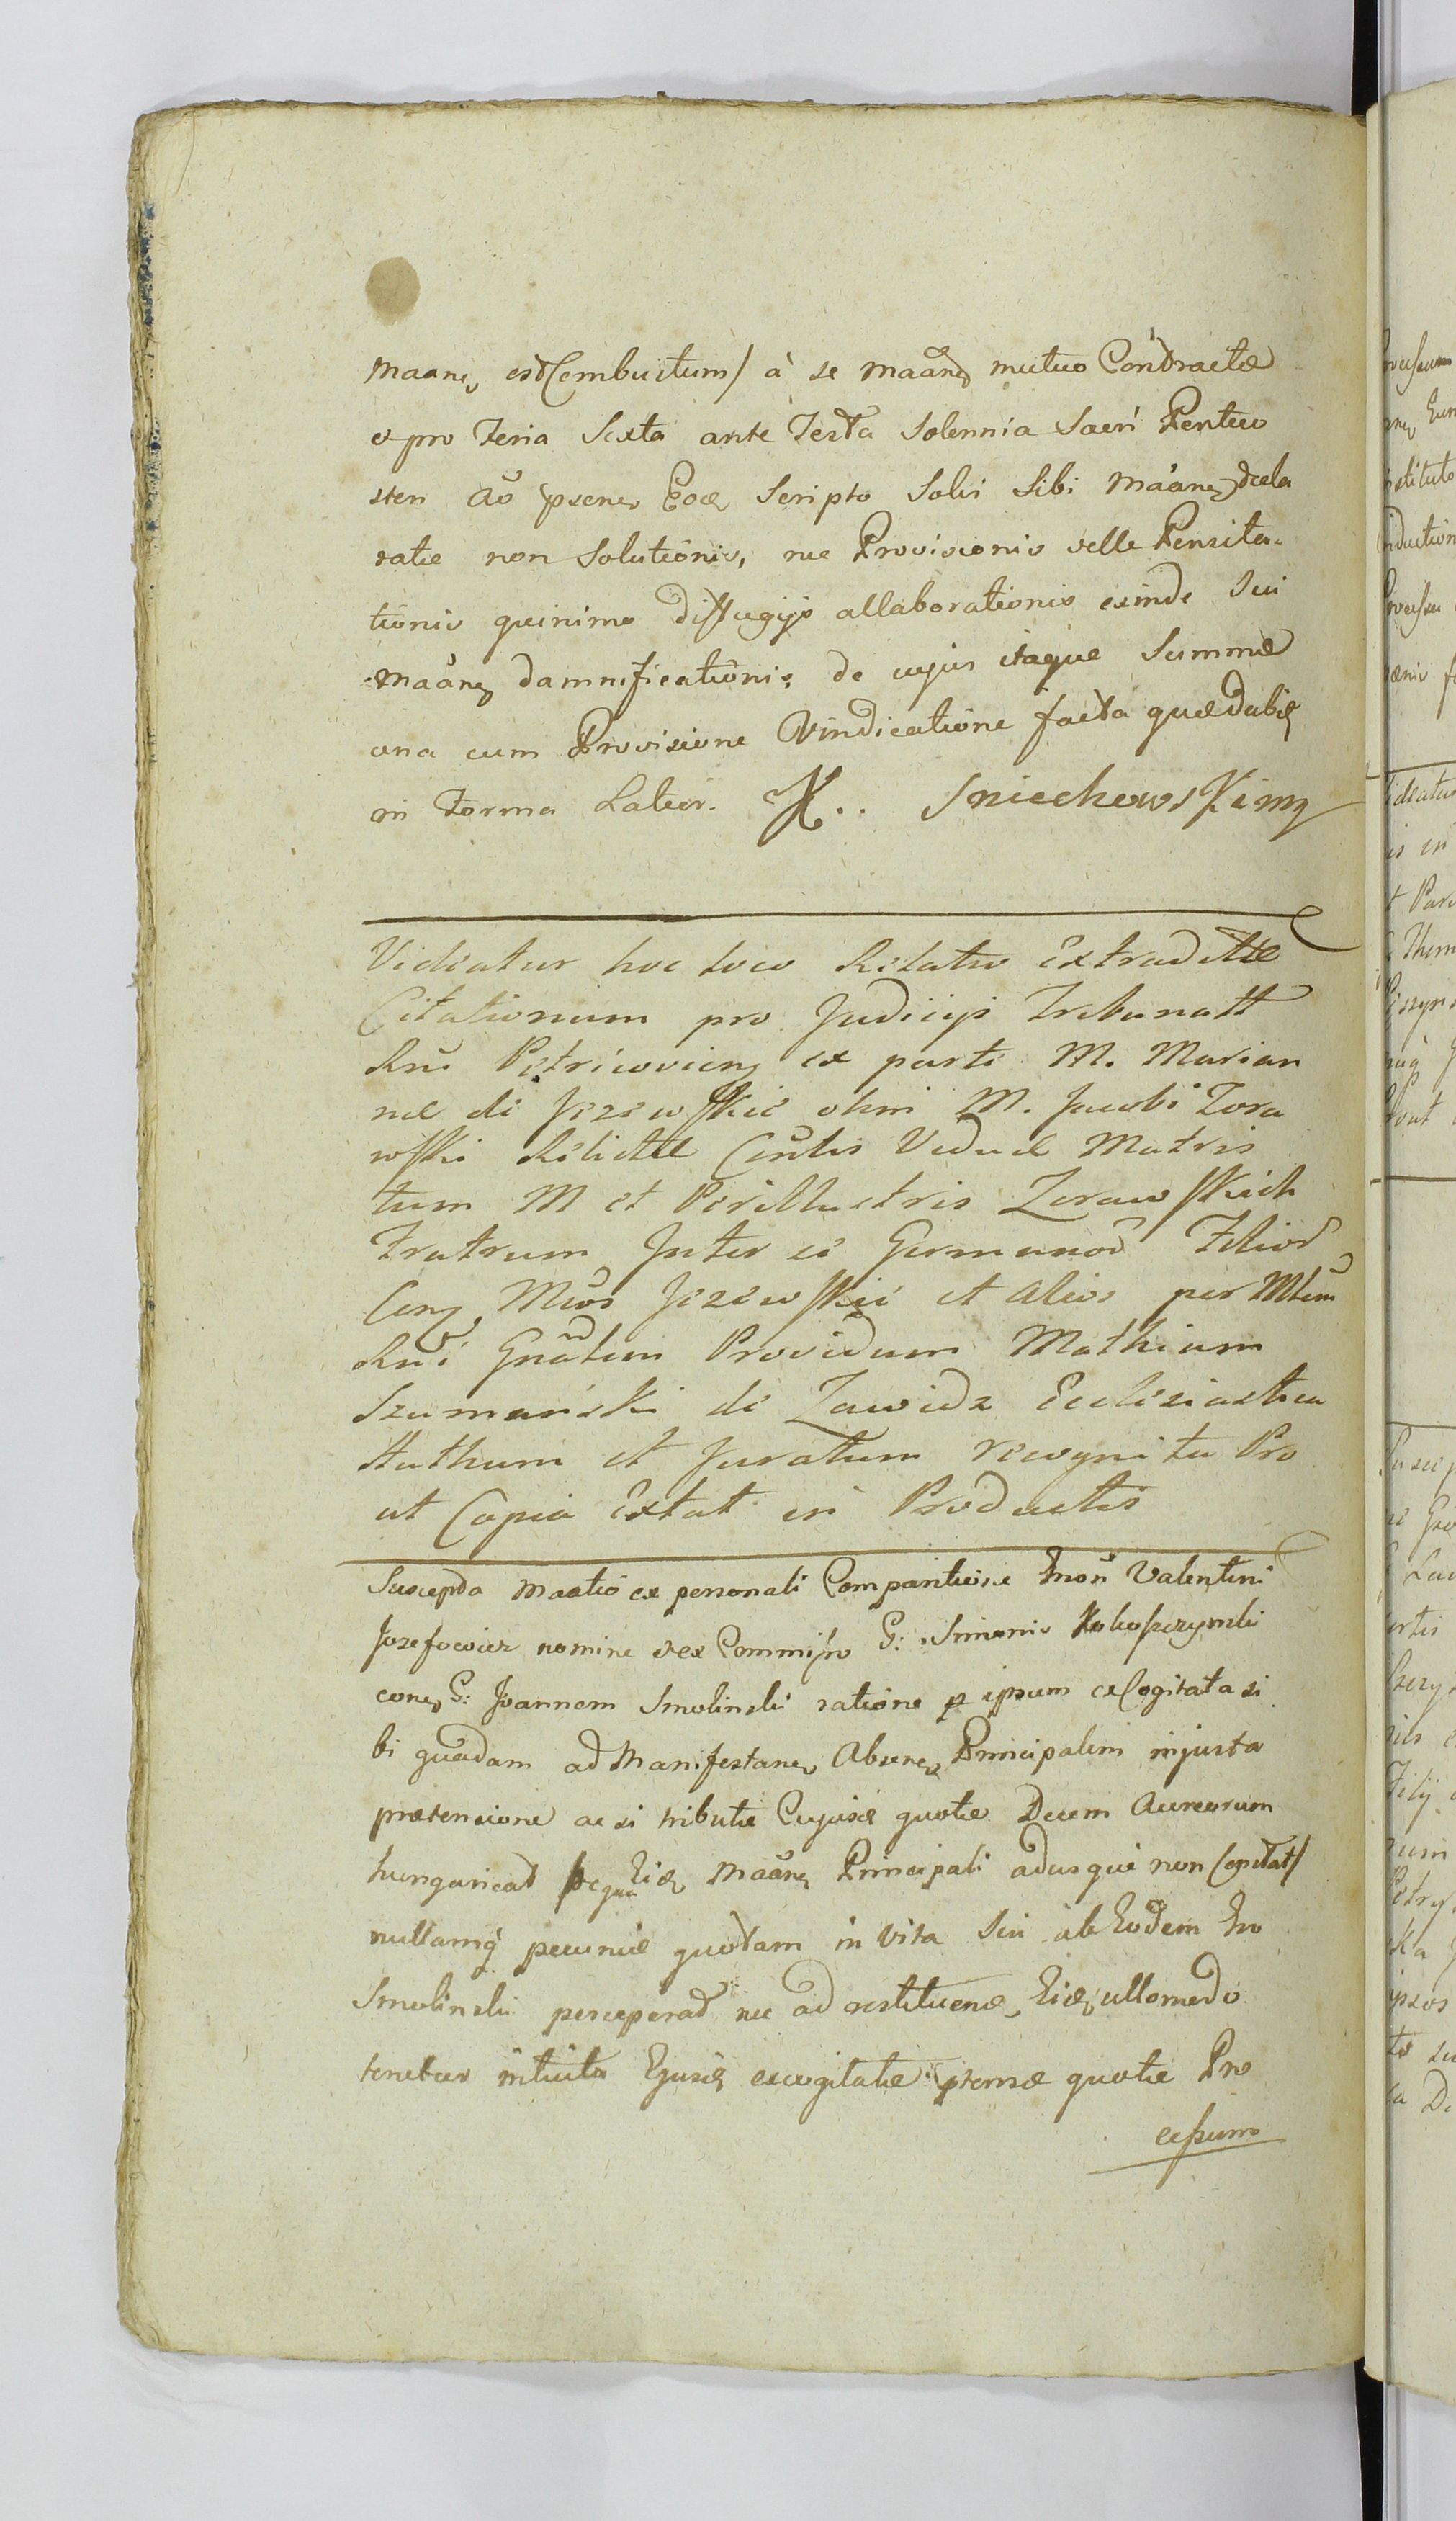 maane, est (embustum) à se maane mutuo Contractæ
et pro Feria Sexta ante Festa Solennia Sacri Penteco
sten Aõ psene, Eoe, Scripto Solvi Sibi maane, decla
ratæ non Solutionis, nec Provisionis velle Pensita-
tionis quinimo diffugijs allaborationis exinde sui
maane damnificationis, de cujus itaque Summæ
una cum Provisione Vindicatione facta quædabis
in Forma Latior. X.. Sniechowskimp
Videatur hoc loco Relatio Extraditæ
Citationum pro Judicijs Tribunalt
Rni Petricovien ex parte M. Marian
næ de Jezewskie olim M. Jacobi Zora
wski Relictæ Cõnlis Viduæ Matris
tum M et Perillustris Zorawskich
Fratrum Inter se Germanor Filior
Con, Mcos Jezewskie et alios per Mtem
Rni Gnãlem Providum Mathiam
Szumański de Zawidz Ecclesiastica
Authum et Juratum recognita Pro
ut Copia Extat in Productis
Suscepta maatio ex personali Comparitione Valentini
Jozefowicz nomine et ex Commisso G: Simonis
cone, G: Joannem Smolinski ratione p ipsum excogitata si
bi quadam ad Manifestane, Absene, Principalem injusta
prætensione ac si tributæ Cujusæ quotæ Decem Aureorum
hungaricad Eide, maane, Principali adusque non
nullamq pecuniæ quotam in vita Sui ab Eodem
Smolinski perceperat nec ad restituend, Eide, ullomodo
tenetur intuitu Ejusd, excogitatæ ptensæ quotæ Pro
cessum